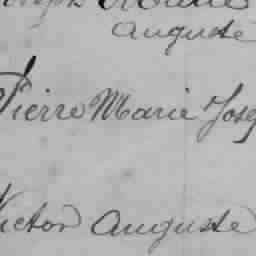 Auguste
Pierre Marie Jose
Victor Auguste